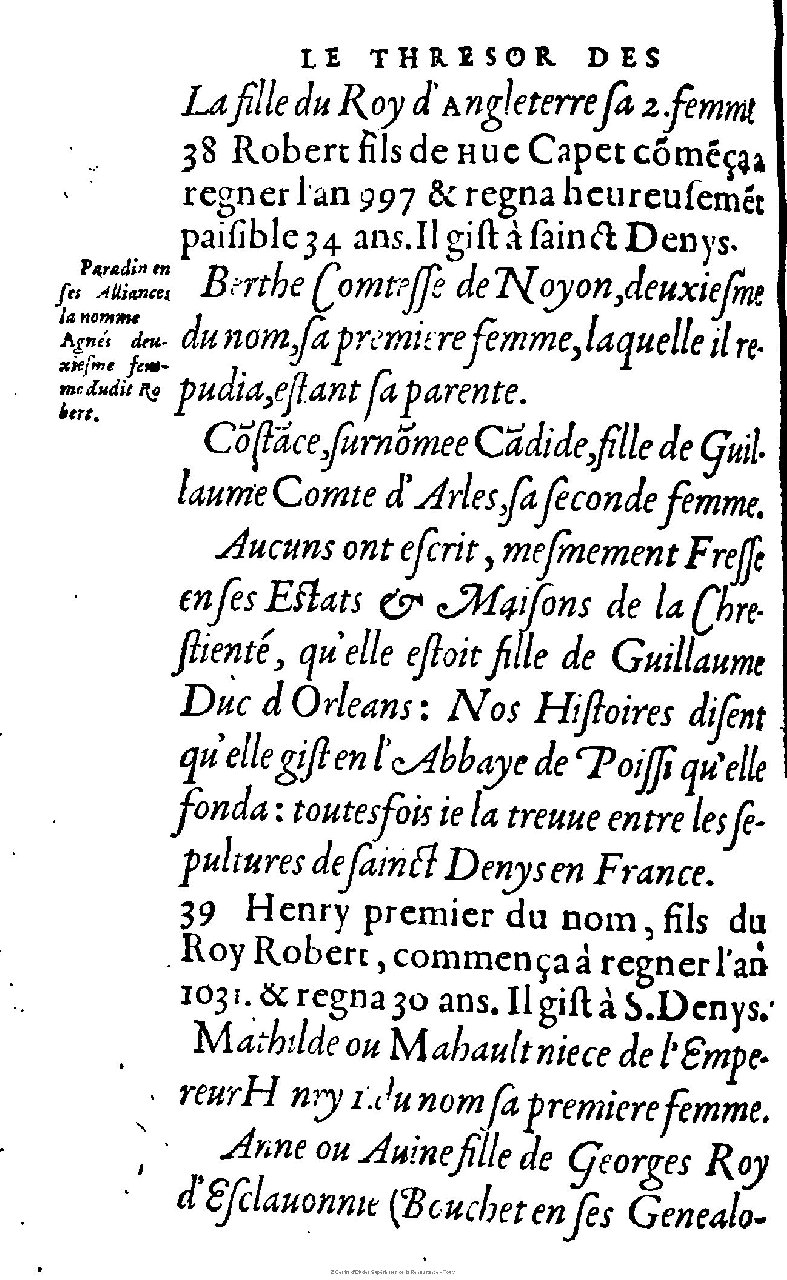 LE THRESOR DES
La fille du Roy d'Angleterre ſa 2. femme
38 Robert fils de Hue Capet cõmẽça a
regner l'an 997 & regna heureuſemẽt
paiſible 34 ans. Il giſt à ſainct Denys.
Paradin en
ſes Alliances
la nomme
Agnés deu-
xieſme fem-
me dudit Ro
bert.
Berthe Comteſſe de Noyon, deuxieſme
du nom, ſa premiere femme, laquelle il re-
pudia, eſtant ſa parente.
Cõſtãce, ſurnõmee Cãdide, fille de Guil-
laume Comte d'Arles, ſa ſeconde femme.
Aucuns ont eſcrit, meſmement Freſſe
en ſes Eſtats & Maiſons de la Chre-
ſtienté, qu'elle eſtoit fille de Guillaume
Duc d Orleans: Nos Hiſtoires diſent
qu'elle giſt en l'Abbaye de Poiſſi qu'elle
fonda: toutesfois ie la treuue entre les ſe-
pultures de ſainct Denys en France.
39 Henry premier du nom, fils du
Roy Robert, commença à regner l'an
1031. & regna 30 ans. Il giſt à S. Denys.
Mathilde ou Mahault niece de l'Empe-
reur H nry 1. du nom ſa premiere femme.
Anne ou Auine fille de Georges Roy
d'Eſclauonnie (Bouchet en ſes Genealo-